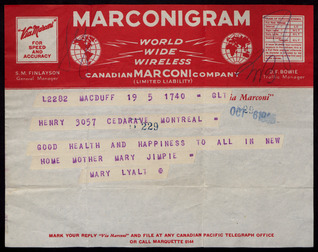 MARCONIGRAM
Via Marconi
FOR
SPEED
AND
ACCURACY
WORLD
WIDE
WIRELESS
S.M. FINLAYSON
General Manager
CANADIAN MARCONI COMPANY
(LIMITED LIABILITY)
D.F. BOWIE
Traffic Manager
L2282 MACDUFF 19 5 1740 = GLT
ia Marconi"
HENRY 3057 CEDARAVE MONTREAL =
229
GOOD HEALTH AND HAPPINESS TO ALL IN NEW
HOME MOTHER MARY JIMPIE =
MARY LYALT
MARK YOUR REPLY "Via Marconi" AND FILE AT ANY CANADIAN PACIFIC TELEGRAPH OFFICE
OR CALL MARQUETTE 8144